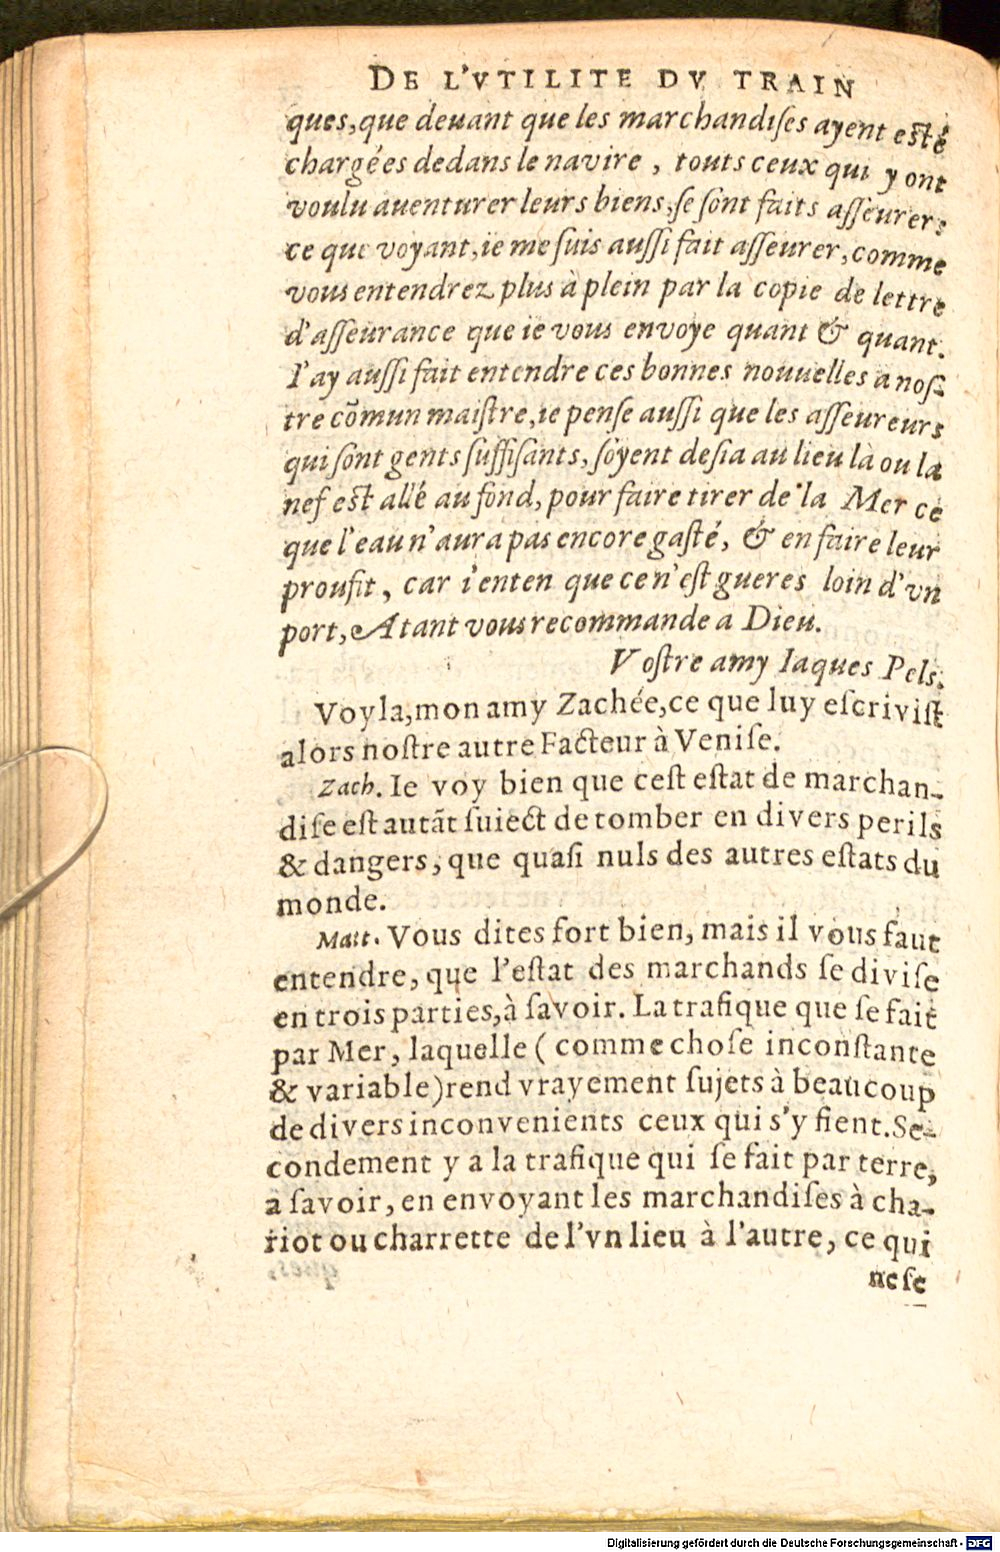 DE L'VTILITE DV TRAIN
ques, que deuant que les marchandiſes ayent eſté
chargées dedans le navire , touts ceux qui y ont
voulu auenturer leurs biens, ſe ſont faits aſſeurer:
ce que voyant, ie me ſuis auſſi fait aſſeurer, comme
vous entendrez plus à plein par la copie de lettre
d'aſſeurance que ie vous envoye quant & quant.
I'ay auſſi fait entendre ces bonnes nouuelles a noſ-
tre cõmun maiſtre, ie penſe auſſi que les aſſeureurs
qui ſont gents ſuffiſants, ſoyent deſia au lieu là ou la
nef eſt allé au fond, pour faire tirer de la Mer ce
que l'eau n'aura pas encore gaſté, & en faire leur
proufit, car i'enten que ce n'eſt gueres loin d'vn
port, A tant vous recommande a Dieu.
Voſtre amy Iaques Pels.
Voyla, mon amy Zachée, ce que luy eſcriviſt
alors noſtre autre Facteur à Veniſe.
Zach. Ie voy bien que ceſt eſtat de marchan-
diſe eſt autãt ſuiect de tomber en divers perils
& dangers, que quaſi nuls des autres eſtats du
monde.
Matt. Vous dites fort bien, mais il vous faut
entendre, que l'eſtat des marchands ſe diviſe
en trois parties, à ſavoir. La trafique que ſe fait
par Mer, laquelle ( comme choſe inconſtante
& variable) rend vrayement ſujets à beaucoup
de divers inconvenients ceux qui s'y fient. Se-
condement y a la trafique qui ſe fait par terre,
a ſavoir, en envoyant les marchandiſes à cha-
riot ou charrette de l'vn lieu à l'autre, ce qui
ne ſe
Digitalisierung gefördert durch die Deutsche Forschungsgemeinschaft - DFG